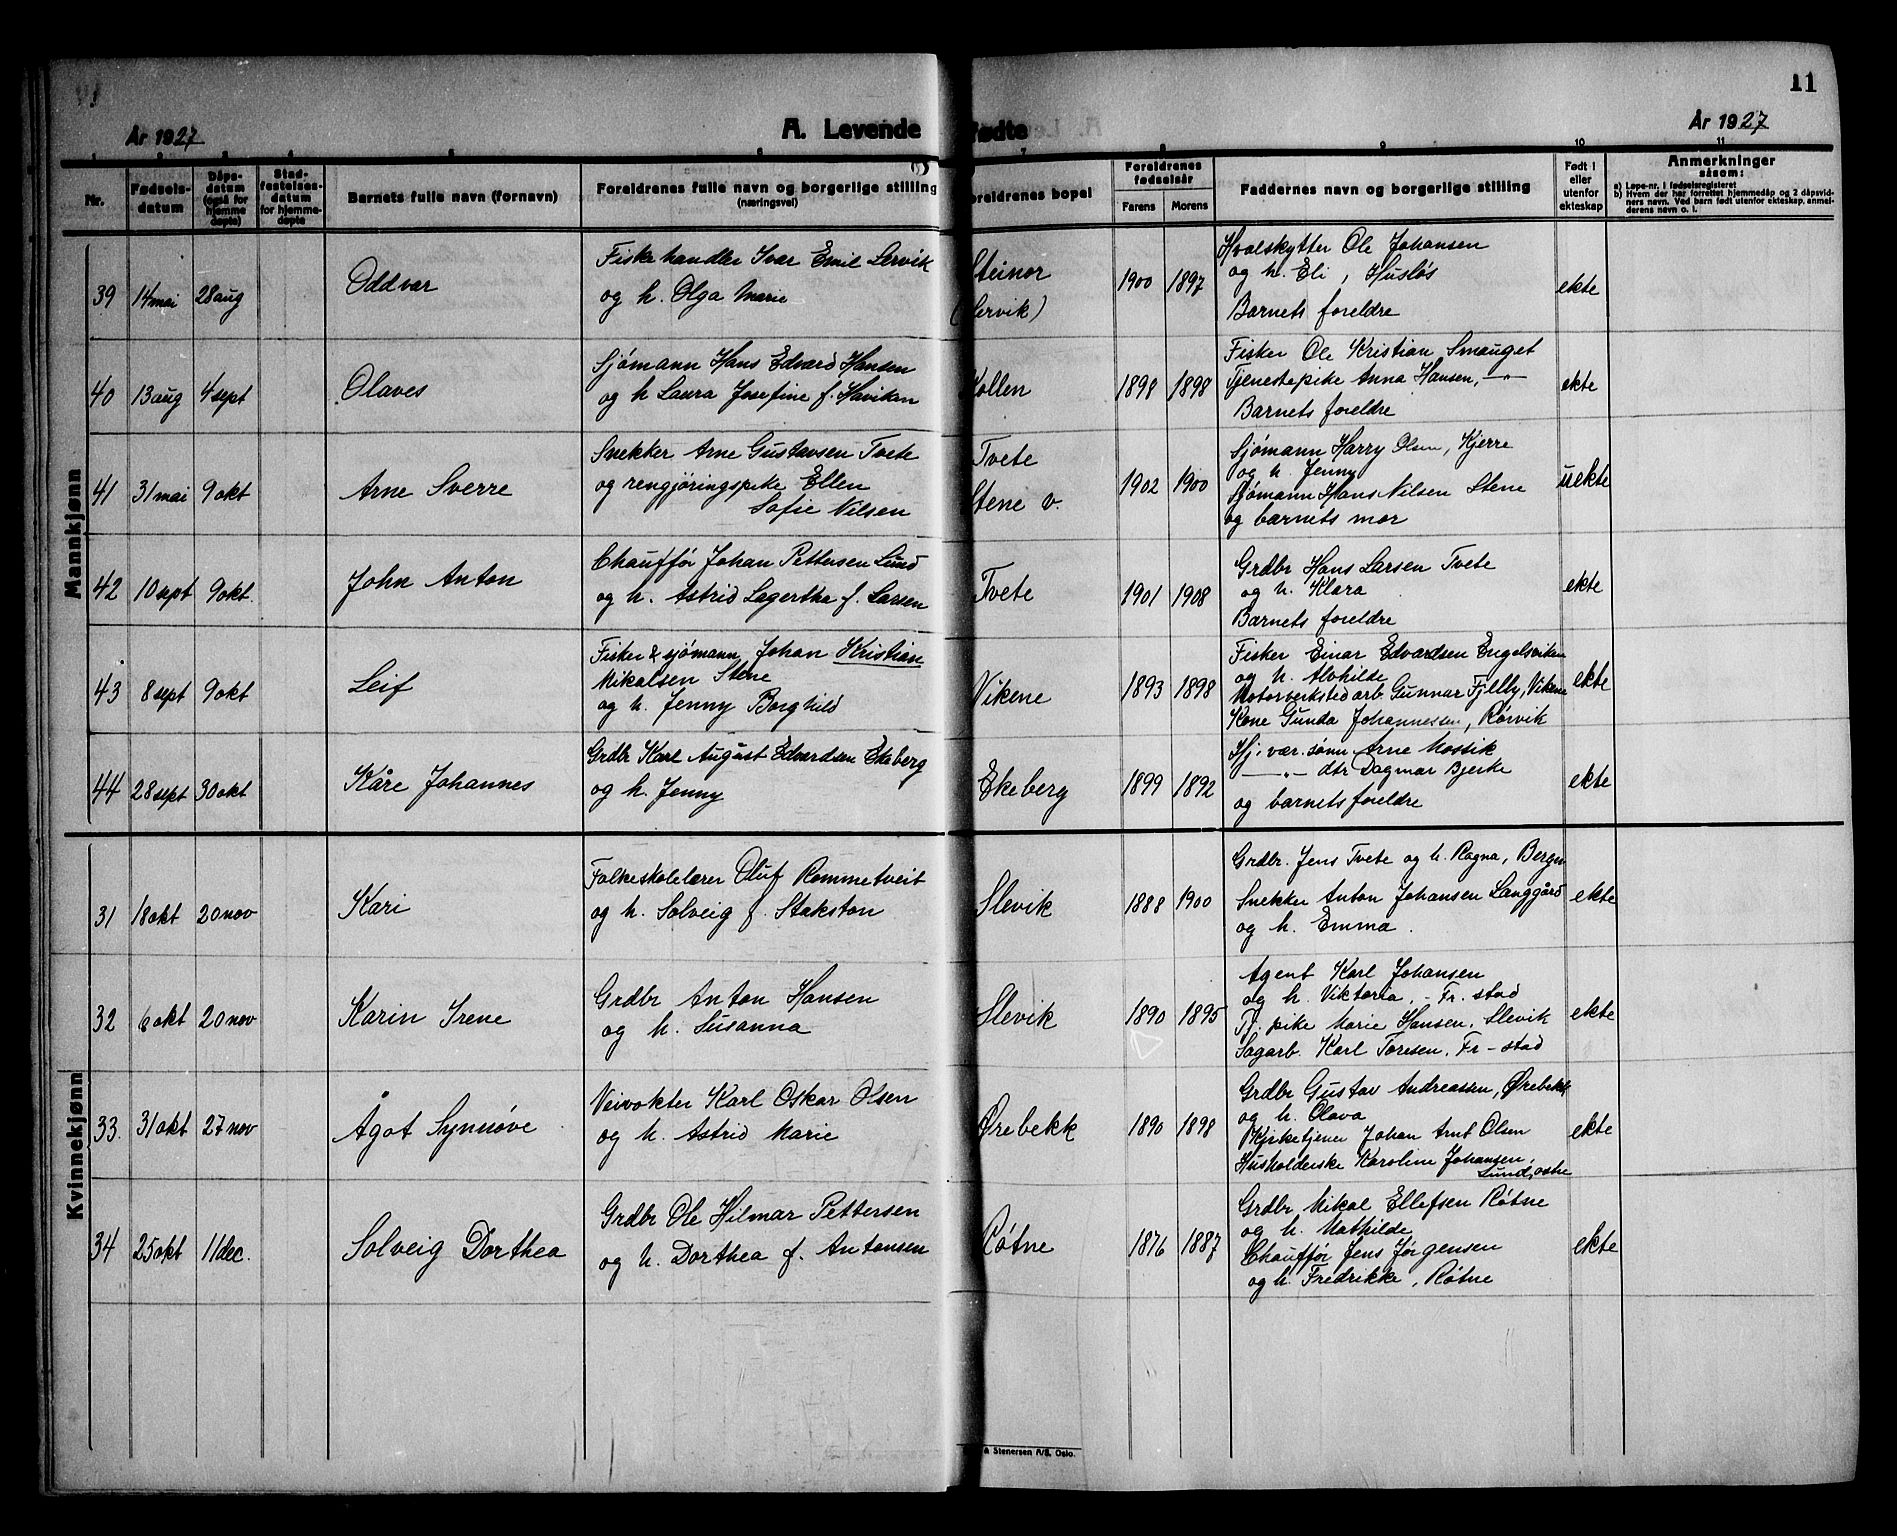 11
År 1927
A. Levende fødte
År 1927
1 2 3 4 5 6 7 8 9 10 11
Nr.
Fødsels-
datum
Dåps-
datum
(også for
hjemme
døpte)
Stad-
festelses-
datum
for hjemme-
døpte
Barnets fulle navn (fornavn)
Foreldrenes fulle navn og borgerlige stilling
(næringsvei)
Foreldrenes bopel
Foreldrenes
fødselsår
Farens Morens
Faddernes navn og borgerlige stilling
Født i
eller
utenfor
ekteskap
Anmerkninger
såsom:
a) Løpe-nr. i fødselsregisteret
b) Hvem der har forrettet hjemmedåp og 2 dåpsvid-
ners navn. Ved barn født utenfor ekteskap, anmel-
derens navn o. l.
Mannkjønn
39 14 mai 28 aug
Oddvar
Fiskehandler Ivar Emil Lervik
og h. Olga Marie
Steinor
(Lervik)
1900 1897
Hvalskytter Ole Johansen
og h. Eli, Husløs
Barnets foreldre
ekte
40 13 aug 4 sept
Olaves
Sjømann Hans Edvard Hansen
og h Laura Josefine f. Havikan
Kollen
1898 1898
Fisker Ole Kristian Smauget
Tjenestepike Anna Hansen, —"—
Barnets foreldre
ekte
41 31 mai 9 okt
Arne Sverre
Snekker Arne Gustavsen Tvete
og rengjøringspike Ellen
Sofie Nilsen
Tvete
Stene v.
1902 1900
Sjømann Harry Olsen, Kjerre
og h. Jenny
Sjømann Hans Nilsen Stene
og barnets mor
uekte
42 10 sept 9 okt.
John Anton
Chauffør Johan Pettersen Lund
og h. Astrid Lagertha f. Larsen
Tvete
1901 1908
Grdbr Hans Larsen Tvete
og h. Klara
Barnets foreldre
ekte
43 8 sept 9 okt
Leif
Fisker & sjømann Johan Kristian
Mikalsen Stene
og h. Jenny Borghild
Vikene
1893 1898
Fisker Einar Edvardsen Engelsviken
og h. Alvhilde
Motorverkstedarb Gunnar Fjelby, Vikene
Kone Gunda Johannessen, Rørvik
ekte
44 28 sept 30 okt
Kåre Johannes
Grdbr Karl August Edvardsen Ekeberg
og h. Jenny
Ekeberg
1899 1892
Hj. vær. sønn Arne Mossik
—"— dtr Dagmar Bjerke
og barnets foreldre
ekte
Kvinnekjønn
31 18 okt 20 nov
Kari
Folkeskolelærer Oluf Rommetveit
og h. Solveig f. Stakston
Slevik
1888 1900
Grdbr. Jens Tvete og h. Ragna, Bergm
Snekker Anton Johansen Langgård
og h. Emma.
ekte
32 6 okt 20 nov
Karin Irene
Grdbr Anton Hansen
og h. Susanna
Slevik
1890 1895
Agent Karl Johansen
og h. Viktoria, - Fr. stad
Tj. pike Marie Hansen, Slevik
Sagarb. Karl Toresen, Fr-stad
ekte
33. 31 okt 27 nov
Ågot Synnøve
Veivokter Karl Oskar Olsen
og h. Astrid Marie
Ørebekk
1890 1898
Grdbr Gustav Andreassen, Ørebekk
og h. Olava
Kirketjener Johan Arnt Olsen
Husholderske Karoline Johansen,
Lund, østre
ekte
34 25 okt 11 dec.
Solveig Dorthea
Grdbr Ole Hilmar Pettersen
og h. Dorthea f. Antonsen
Røtne
1876 1887
Grdbr Mikal Ellefsen Røtne
og h. Mathilde
Chauffør Jens Jørgensen
og h. Fredrikke, Røtne
ekte
& Stenersen A/S, Oslo.